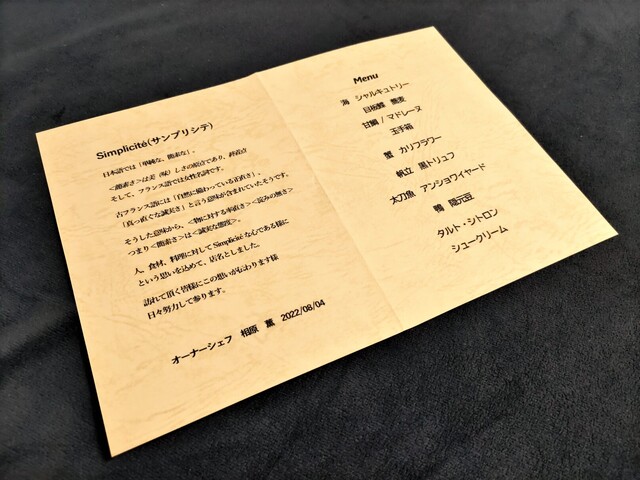 Simplicité(サンプリシテ)
日本語では「単純な、簡素な」。
<簡素さ>は美(味)しさの原点であり、終着点
そして、フランス語では女性名詞です。
古フランス語には「自然に備わっている正直さ」、
「真っ直ぐな誠実さ」と言う意味が含まれていたそうです。
そうした意味から、<物に対する率直さ><淀みの無さ>
つまり<簡素さ>は<誠実な態度>。
人、食材、料理に対してSimplicitéな心である様に
という思いを込めて、店名としました。
訪れて頂く皆様にこの想いが伝わります様
日々努力して参ります。
オーナーシェフ 相原 薫 2022/08/04
Menu
海 シャルキュトリー
目板鰈 蕎麦
甘鯛 / マドレーヌ
玉手箱
蟹 カリフラワー
帆立 黒トリュフ
太刀魚 アンショワイヤード
鴨 隠元豆
タルト・シトロン
シュークリーム